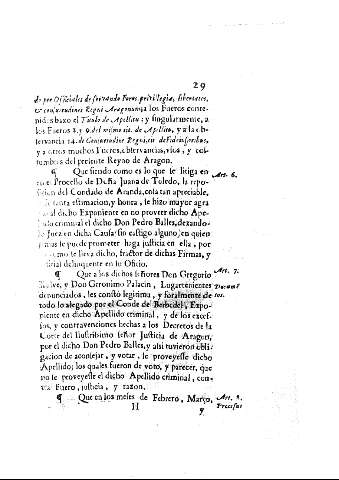 29
do por Officiales de servando Foros, privilegia, libertates,
& consuetudines Regni Aragonum; a los Fueros conte-
nidos baxo el Titulo de Apellitu; y singularmente, a
los Fueros 8. y 9. del mismo tit. de Apellitu, y a la ob-
servancia 14. de Consuetudine Regni, de Fideiussoribus,
y a otros muchos Fueros, observancias, usos, y cos-
tumbres del presente Reyno de Aragon.
¶ Que siendo como es lo que se litiga en Art. 6.
Processo de Doña Juana de Toledo, la repo-
sicion del Condado de Aranda, cosa tan apreciable,
de tanta estimacion, y honra, le hizo mayor agra
al dicho Exponiente en no proveer dicho Ape-
lido criminal el dicho Don Pedro Balles, dexando-
Juez en dicha Causa sin castigo alguno, en quien
se puede prometer haga justicia en ella, por
como se lleva dicho, fractor de dichas Firmas, y
delinquente en su Oficio.
¶ Que a los dichos señores Don Gregorio Art. 7.
y Don Geronimo Palacin, Lugartenientes Denunc
denunciados, les constò legitimè, y foralmente de tos.
todo lo alegado por el Conde de Berbedel, Expo-
niente en dicho Apellido criminal, y de los exces-
sos, y contravenciones hechas a los Decretos de la
Corte del Ilustrissimo señor Justicia de Aragon,
por el dicho Don Pedro Balles, y assi tuvieron obli-
gacion de aconsejar, y votar, se proveyesse dicho
Apellido; los quales fueron de voto, y parecer, que
no se proveyesse el dicho Apellido criminal, con-
tra Fuero, justicia, y razon.
¶ Que en los meses de Febrero, Março, Art. 8.
H y Processos